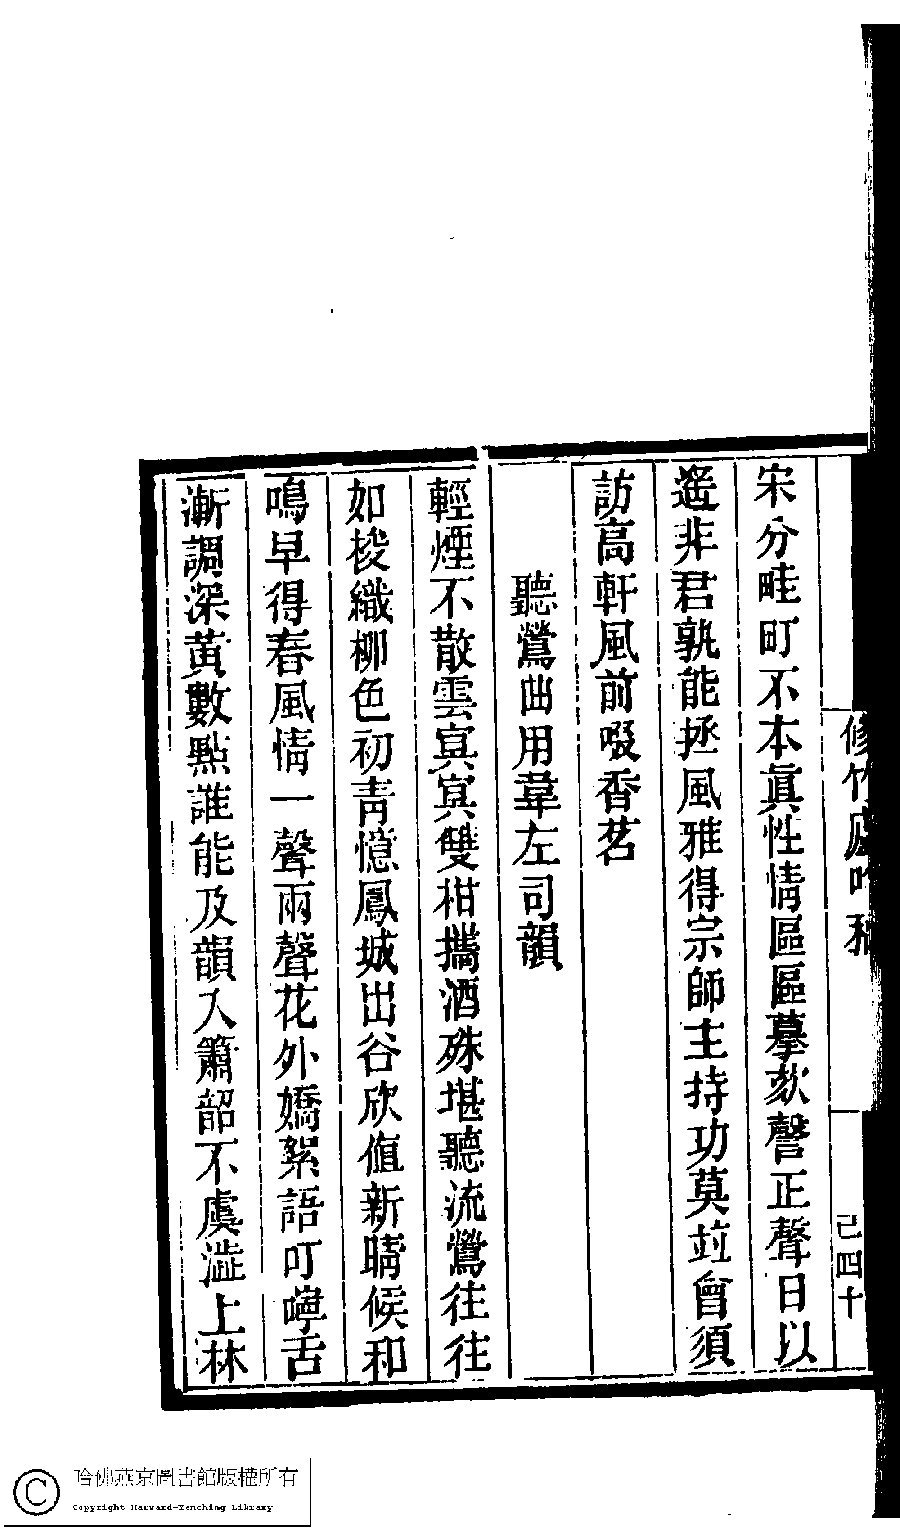 修竹廬吟稿
己四十
宋分畦町不本眞性情區區摹欬謦正聲日以
遙非君孰能拯風雅得宗師主持功莫竝會須
訪高軒風前啜香茗
聽鶯曲用韋左司韻
輕煙不散雲寘寘雙柑攜酒殊堪聽流鶯往往
如梭織柳色初靑憶鳳城出谷欣値新晴候和
鳴早得春風情一聲兩聲花外嬌絮語叮嚀舌
漸調深黃數點誰能及韻入簫韶不虞澁上林
哈佛燕京圖書館版權所有
Copyright Harvard-Yenching Library